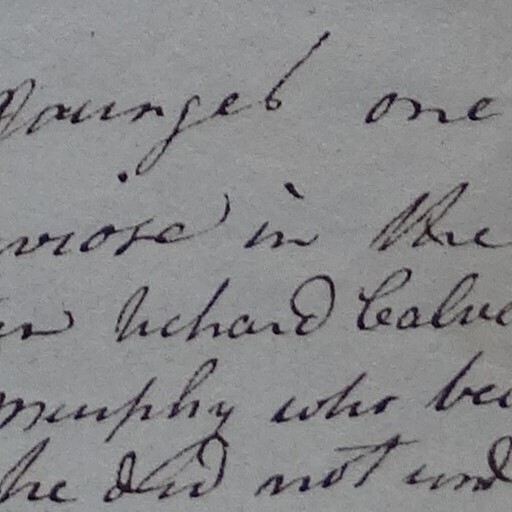 youngest one
in the
Richard Calve
murphy who bec
he did not und